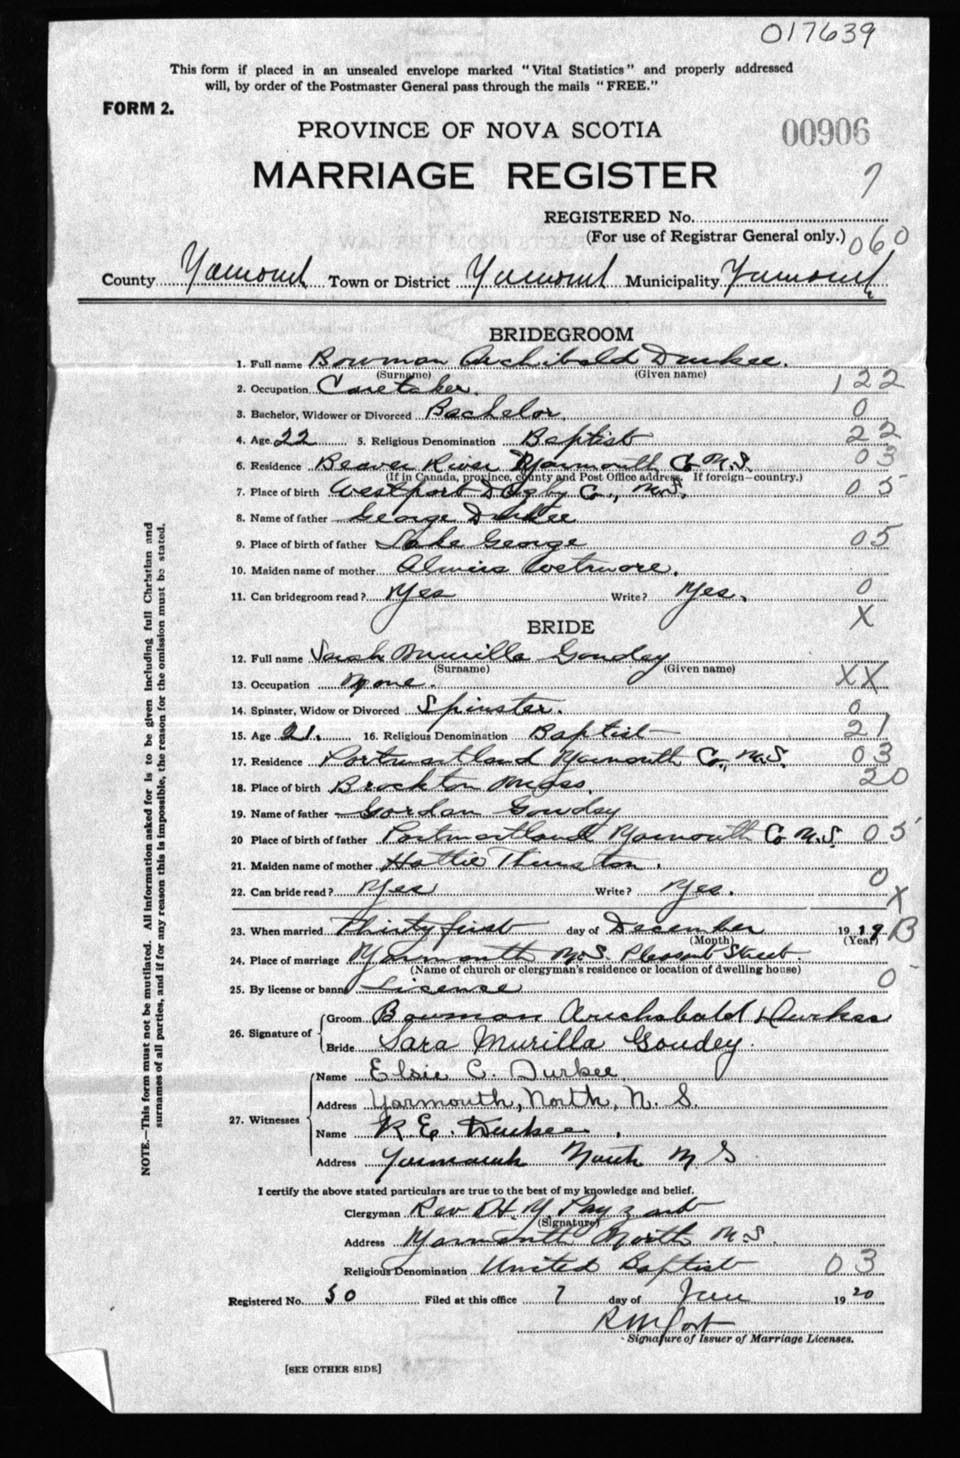 017639
This form if placed in an unsealed envelope marked "Vital Statistics" and properly addressed
will, by order of the Postmaster General pass through the mails "FREE."
FORM 2.
PROVINCE OF NOVA SCOTIA
00906
MARRIAGE REGISTER
7
REGISTERED No.
(For use of Registrar General only.)
060
County Yarmouth Town or District Yarmouth Municipality Yarmouth
BRIDEGROOM
1. Full name Bowman Archibald Durkee.
(Surname) (Given name)
2. Occupation Caretaker. 122
3. Bachelor, Widower or Divorced Bachelor. 0
4. Age 22 5. Religious Denomination Baptist 22
6. Residence Beaver River Yarmouth Co N.S. 03
(If in Canada, province, county and Post Office address. If foreign—country.)
7. Place of birth Westport Digby Co., N.S. 05
8. Name of father George Durkee
9. Place of birth of father Lake George 05
10. Maiden name of mother
11. Can bridegroom read? Yes Write? Yes. 0
X
BRIDE
12. Full name Sarah Murilla Goudey
(Surname) (Given name)
13. Occupation None. XX
14. Spinster, Widow or Divorced Spinster. 0
15. Age 21. 16. Religious Denomination Baptist 21
17. Residence Portmaitland Yarmouth Co., N.S. 03
18. Place of birth Brockton Mass. 20
19. Name of father Gordan Goudey
20 Place of birth of father Portmaitland Yarmouth Co N.S. 05
21. Maiden name of mother Hattie Thurston.
22. Can bride read? Yes Write? Yes. 0
X
23. When married Thirty first day of December 1919 B
(Month) (Year)
24. Place of marriage Yarmouth N.S. Pleasant Street.
(Name of church or clergyman's residence or location of dwelling house)
25. By license or banns License 0
26. Signature of
Groom Bowman Archabald Durkee
Bride Sara Murilla Goudey.
27. Witnesses
Name Elsie C. Durkee
Address Yarmouth, North, N. S.
Name R. E. Durkee.
Address Yarmouth North N S
I certify the above stated particulars are true to the best of my knowledge and belief.
Clergyman Rev
(Signature)
Address Yarmouth North N.S.
Religious Denomination United Baptist 03
Registered No. 50 Filed at this office 7 day of 1920
Signature of Issuer of Marriage Licenses.
[SEE OTHER SIDE]
NOTE.—This form must not be mutilated. All information asked for is to be given including full Christian and
surnames of all parties, and if for any reason this is impossible, the reason for the omission must be stated.